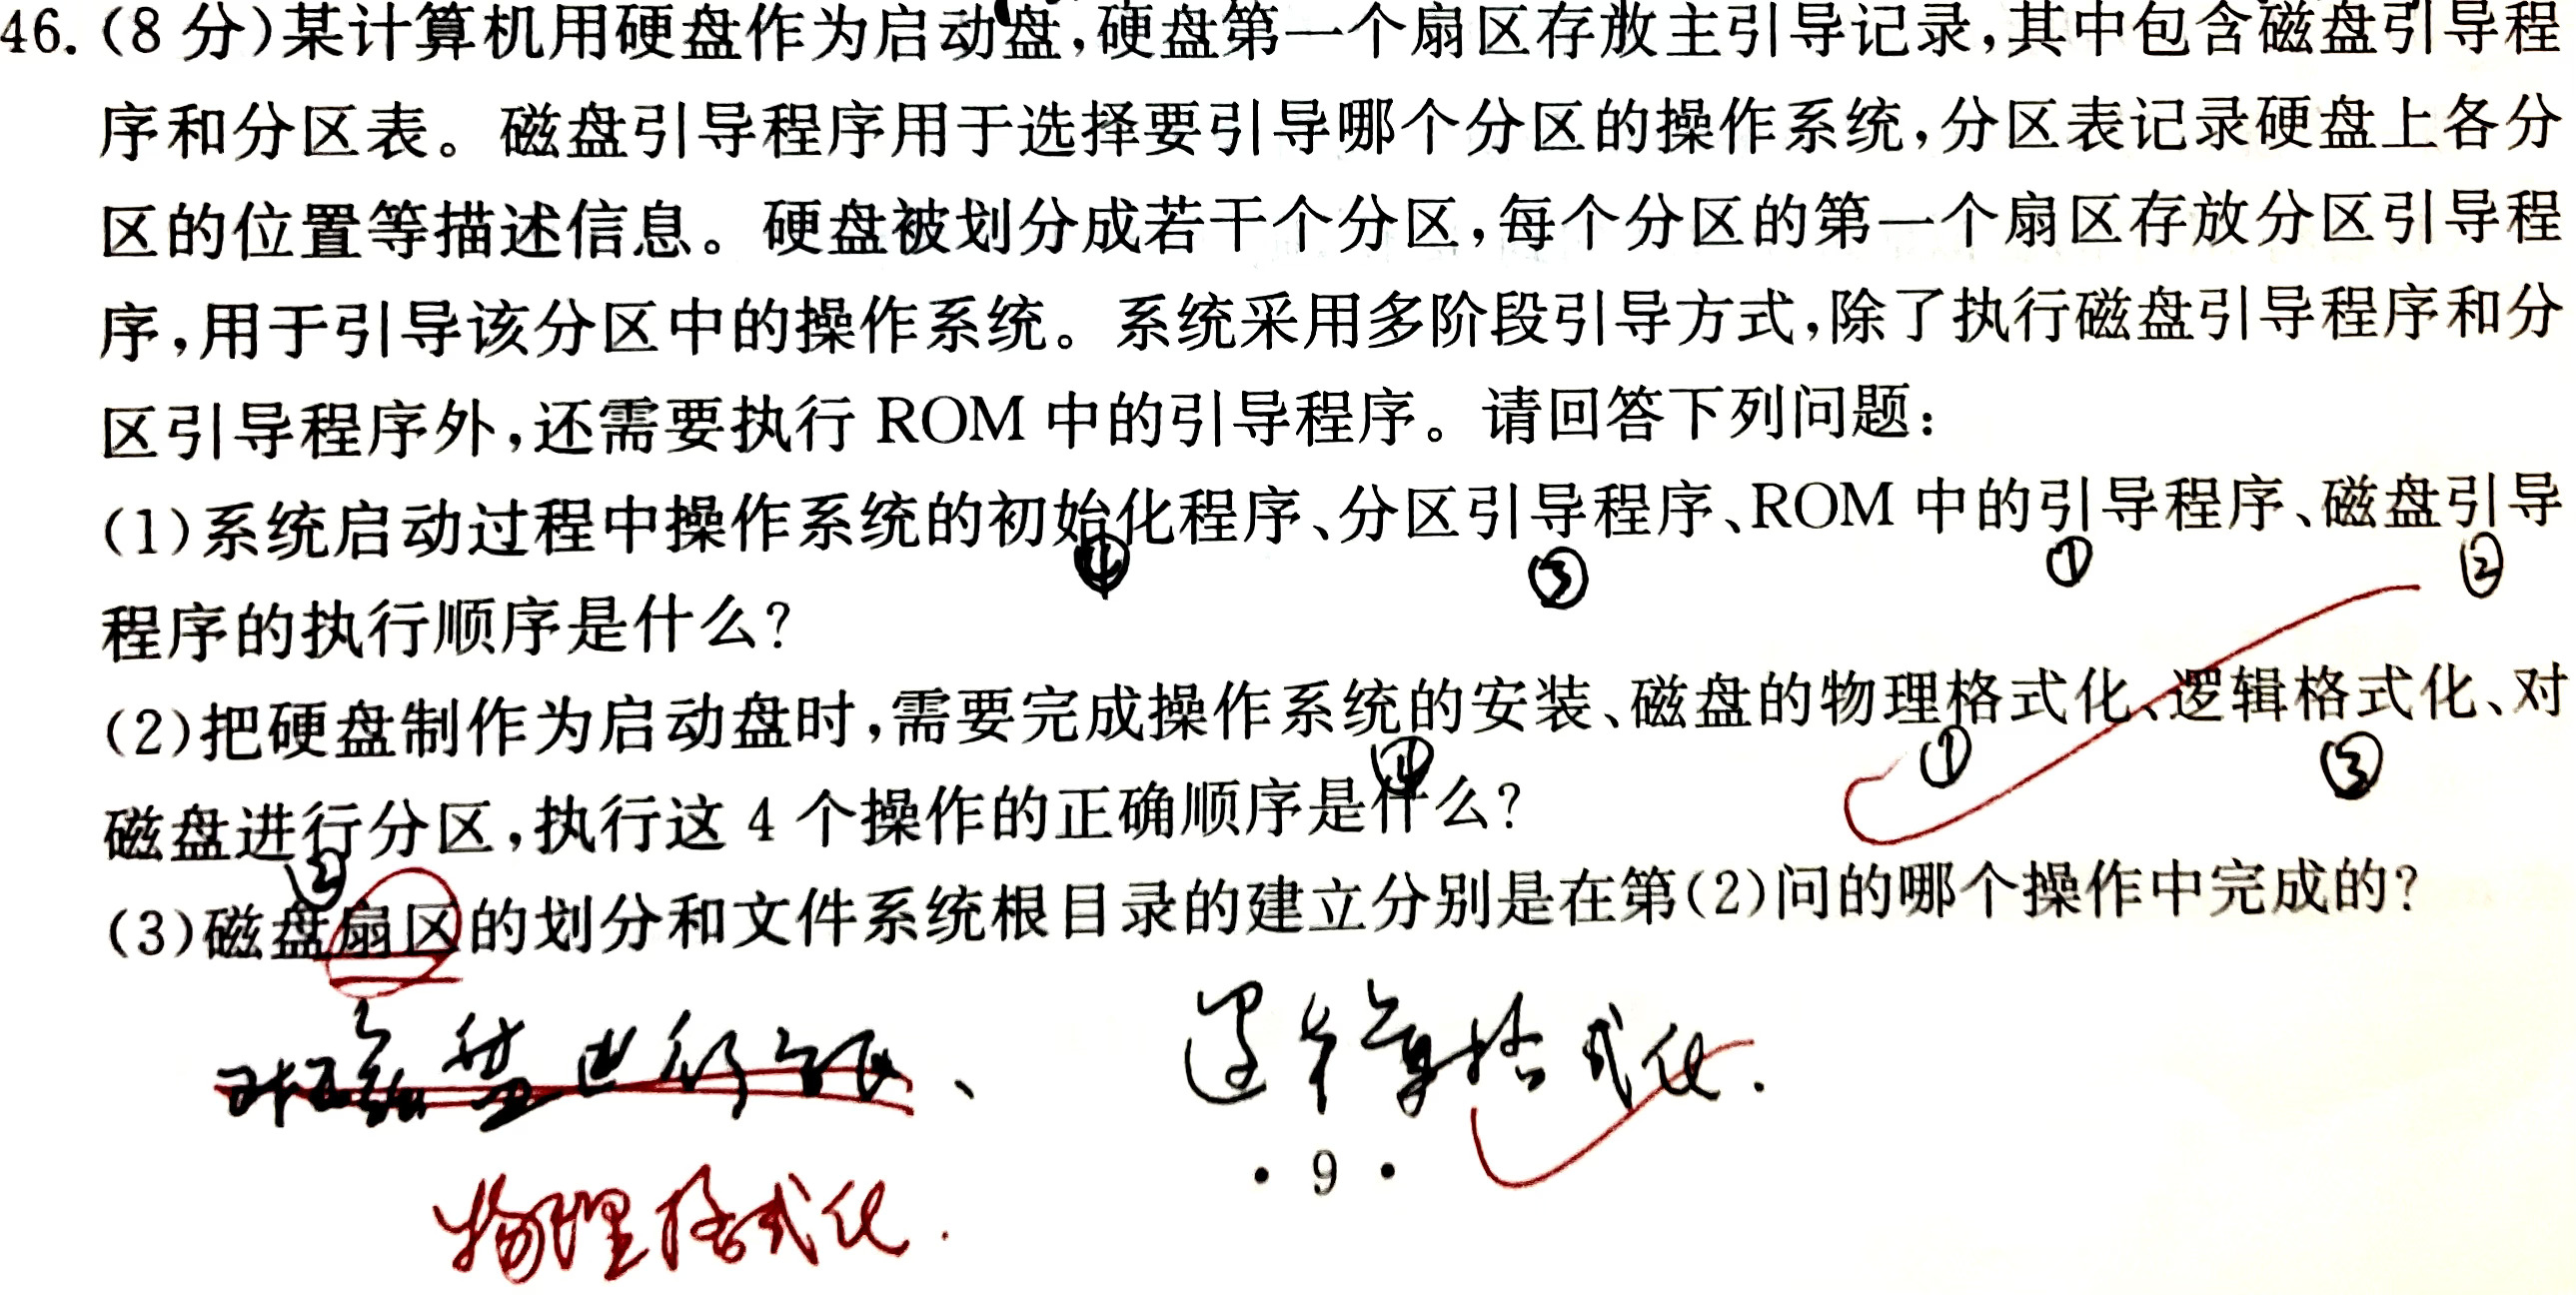 46.(8 分)某计算机用硬盘作为启动盘,硬盘第一个扇区存放主引导记录,其中包含磁盘引导程
序和分区表。磁盘引导程序用于选择要引导哪个分区的操作系统,分区表记录硬盘上各分
区的位置等描述信息。硬盘被划分成若干个分区,每个分区的第一个扇区存放分区引导程
序,用于引导该分区中的操作系统。系统采用多阶段引导方式,除了执行磁盘引导程序和分
区引导程序外,还需要执行 ROM 中的引导程序。请回答下列问题:
(1)系统启动过程中操作系统的初始化程序、分区引导程序、ROM 中的引导程序、磁盘引导
④ ③ ① ②
程序的执行顺序是什么?
(2)把硬盘制作为启动盘时,需要完成操作系统的安装、磁盘的物理格式化、逻辑格式化、对
④ ① ③
磁盘进行分区,执行这 4 个操作的正确顺序是什么?
②
(3)磁盘扇区的划分和文件系统根目录的建立分别是在第(2)问的哪个操作中完成的?
对磁盘进行分区、 逻辑格式化.
· 9 ·
物理格式化.